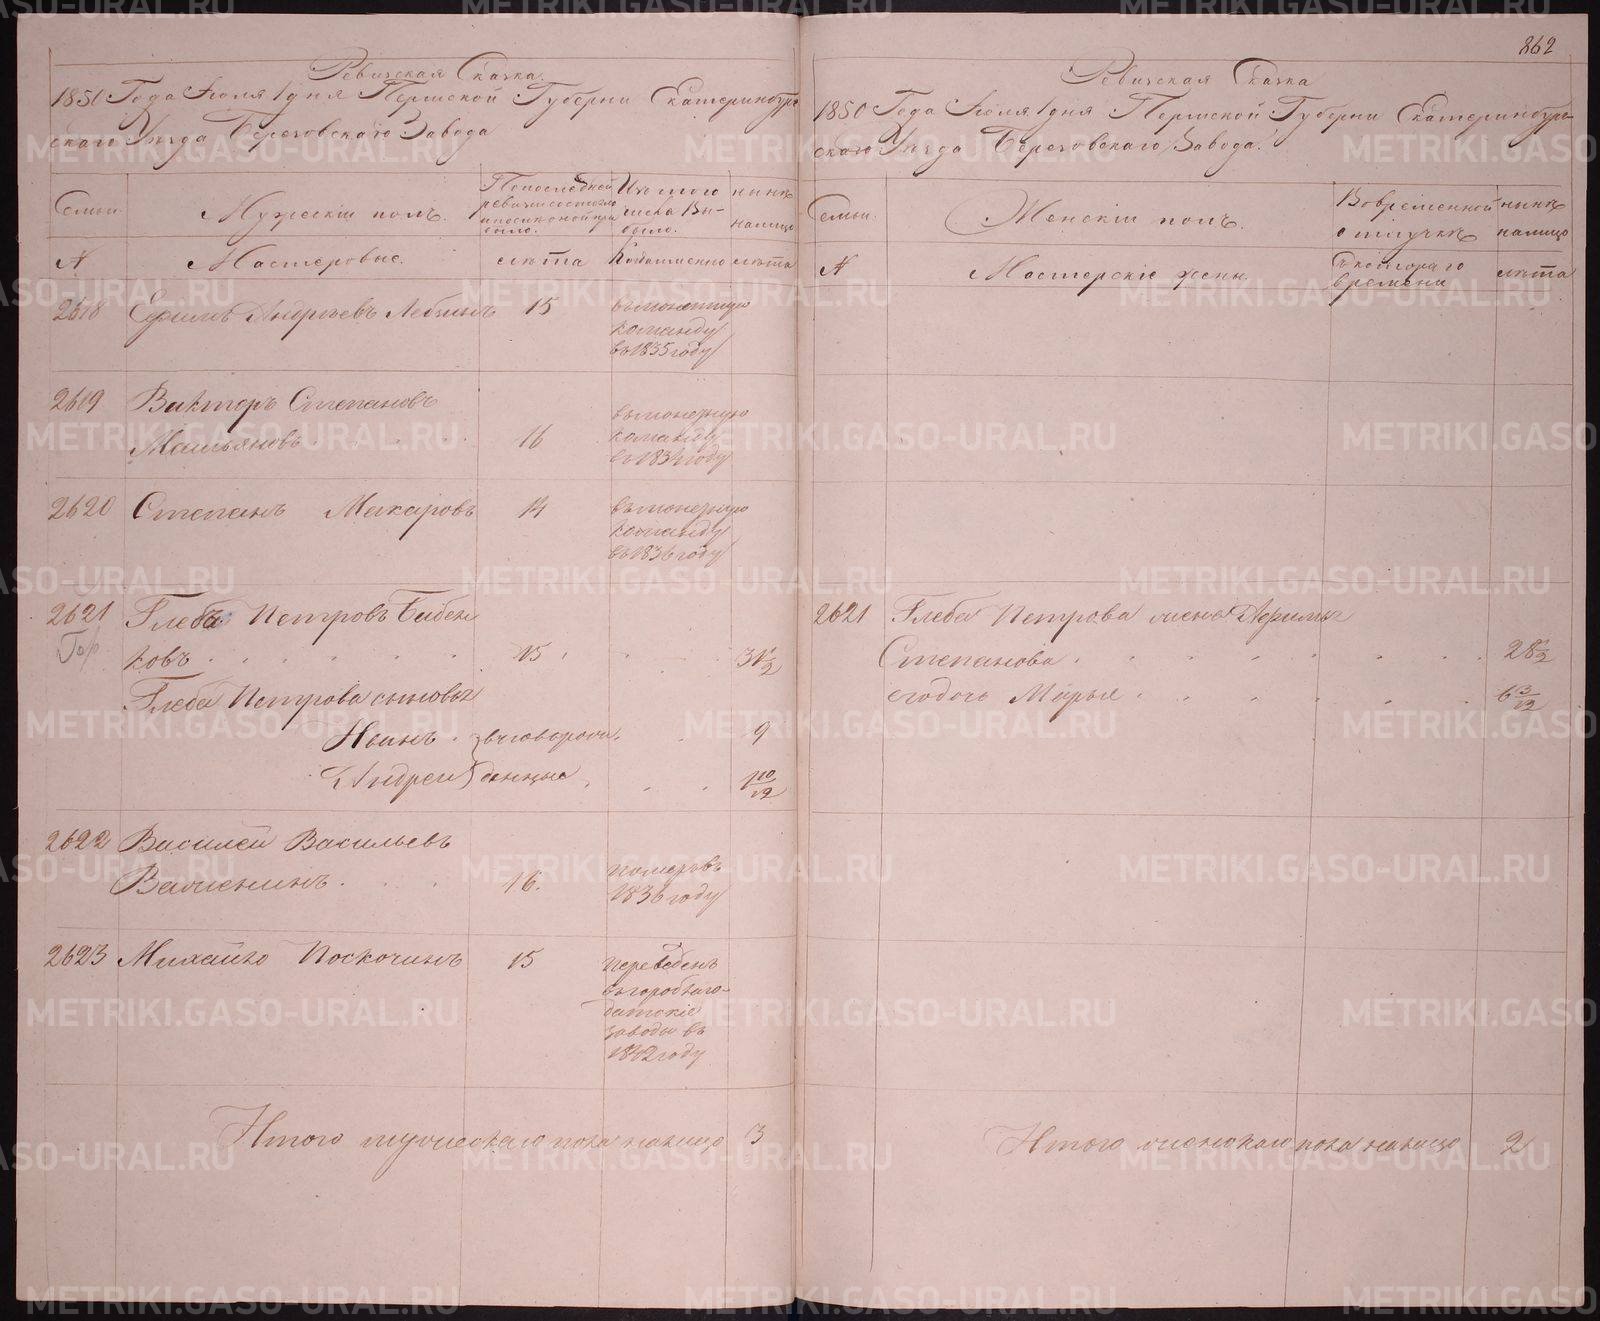 Ревизская Сказка.
1851 Года Июля 1 дня Пермской Губернии Екатеринбург
скаго Уезда Березовскаго Завода
Семьи
Мужескій полъ.
По последней
ревизіи состояло
было.
Изъ того
числа Вы-
было.
ныне
налицо
№
Мастеровые.
лѣта
Когда именно
лѣта
2618 Ефимъ Андреевъ 15
команду
въ 1835 году
2619 Викторъ Степановъ
16
команду
въ 1834 году
2620 Степанъ Макаровъ 14
команду
въ 1836 году
2621 Глебъ Петровъ
ковъ 15 31 1/2
Глеба Петрова сыновья
Иванъ 9
Андрей 1 10/12
2622 Василей Васильевъ
16. померъ въ
1836 году
2623 Михайло Поскочинъ 15 переведенъ
въ гороблаго-
датскіе
заводы въ
1842 году
Итого мужескаго пола налицо 3
862
Ревизская Сказка
1850 Года Июля 1 дня Пермской Губернии Екатеринбург-
скаго Уезда Березовскаго Завода.
Семьи.
Женскій полъ.
Во временной
отлучкѣ
ныне
налицо
№
Мастерскіе жены
съ котораго
времени
лѣта
2621 Глеба Петрова жена
Степанова
его дочь Марья 6 3/12
Итого женскаго пола налицо 2
METRIKI.GASO-URAL.RU